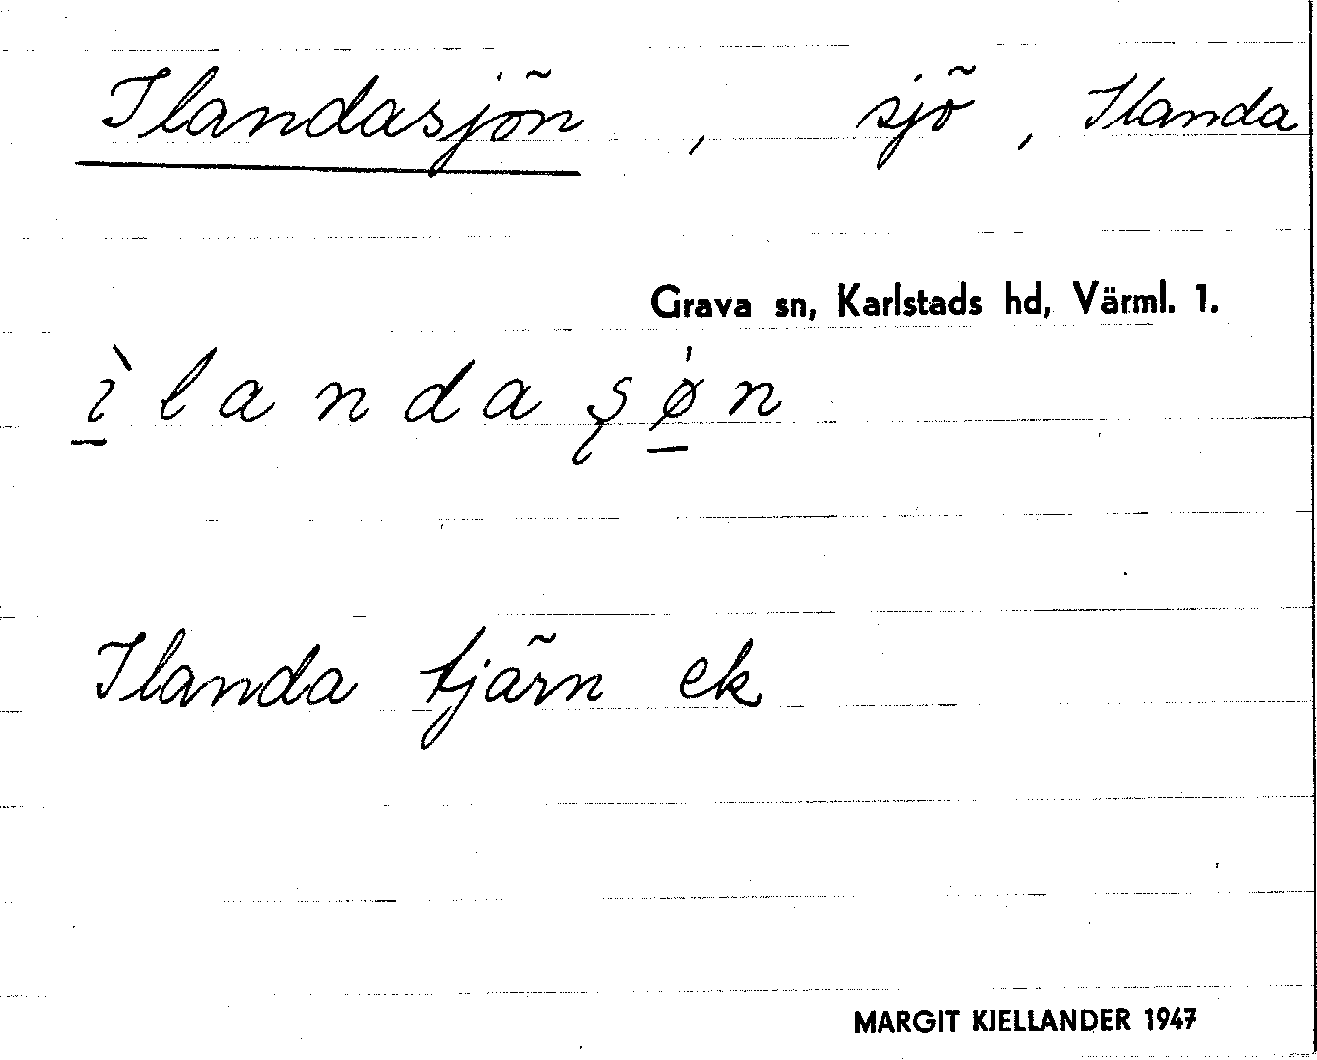 Ilandasjön, sjö, Ilanda
Grava sn, Karlstads hd, Värml. 1.
ì̱landaʂǿ̱n
Ilanda tjärn ek
MARGIT KJELLANDER 1947